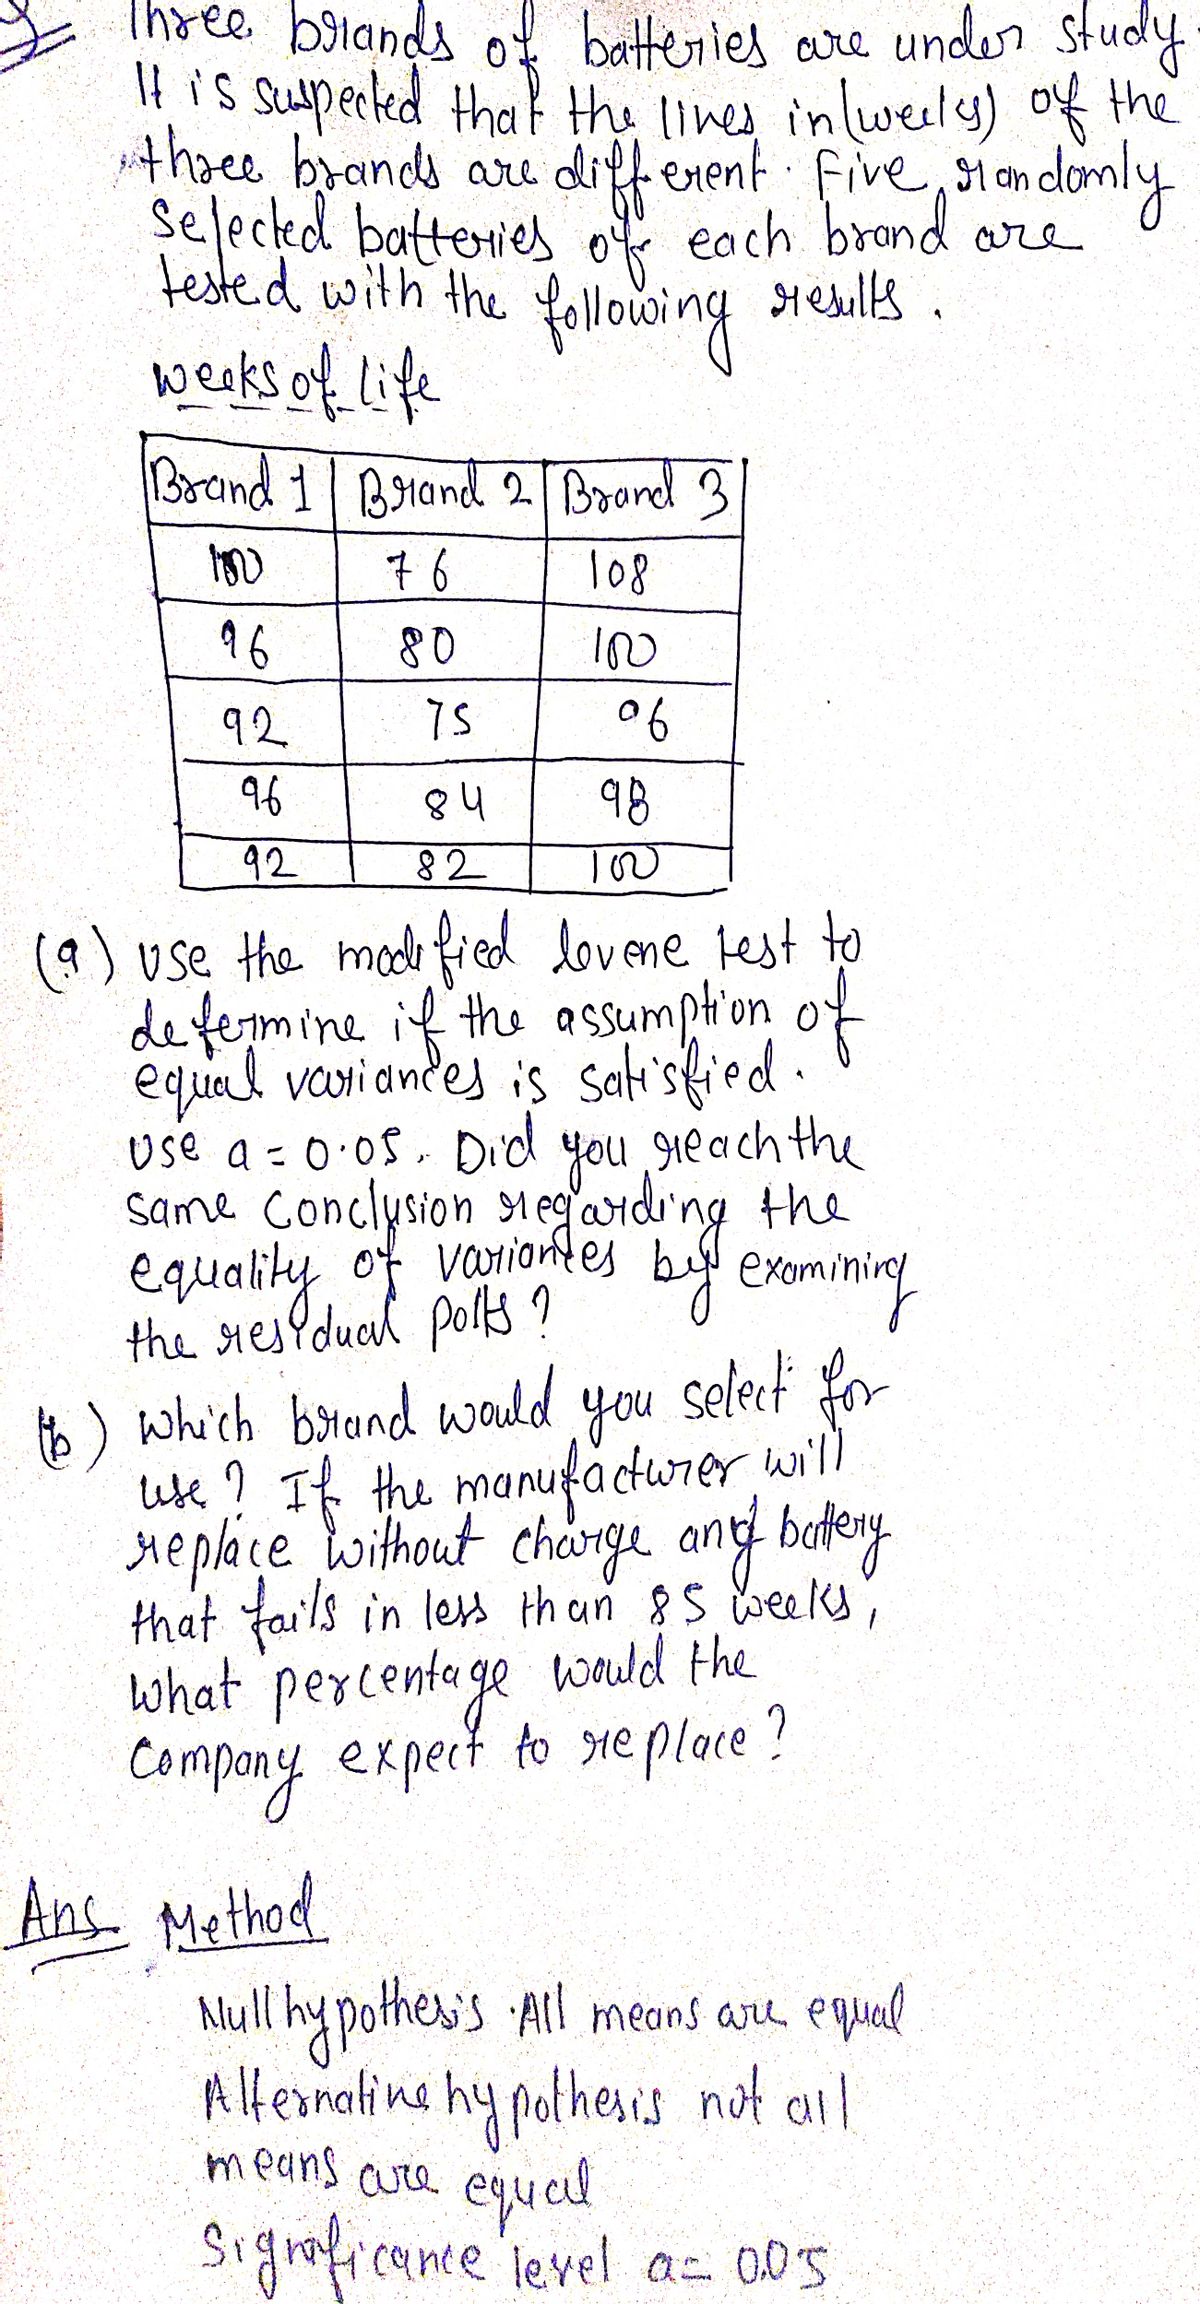 Three brands of batteries are under study.
It is suspected that the lives in (weeks) of the
three brands are different. Five randomly
selected batteries of each brand are
tested with the following results.
weeks of life
Brand 1 Brand 2 Brand 3
100 76 108
96 80 100
92 75 96
96 84 98
92 82 100
(a) Use the modified levene test to
determine if the assumption of
equal variances is satisfied.
Use a = 0.05. Did you reach the
same conclusion regarding the
equality of variances by examining
the residual polts?
(b) Which brand would you select for
use? If the manufacturer will
replace without charge any battery
that fails in less than 85 weeks,
what percentage would the
company expect to replace?
Ans Method
Null hypothesis All means are equal
Alternative hypothesis not all
means are equal
Significance level a = 0.05